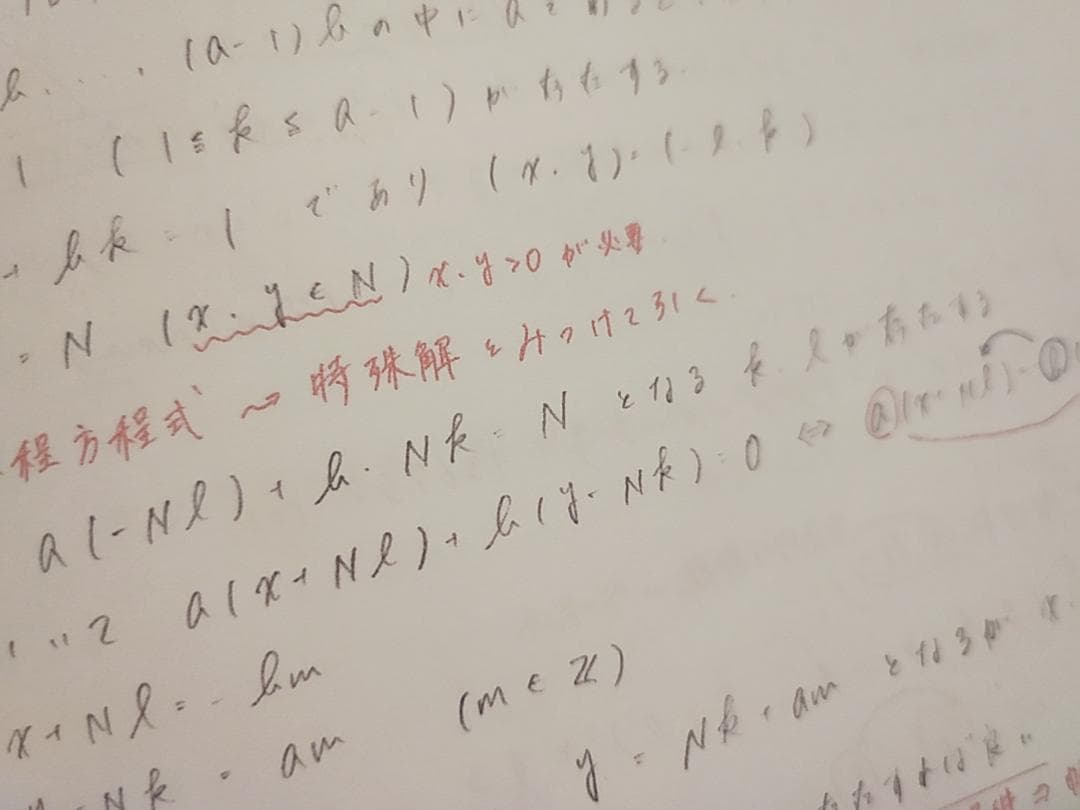 b. . . . , (a-1)b の中に a で
1 (1≦k≦a-1)がただする
+ bk = 1 であり (x.y)=(-l.k)
= N (x.y∈N) x.y>0 が必要
程方程式 〜→ 特殊解をみつけて引く.
a(-Nl)+b.Nk=N となる k.l がただする
a(x+Nl)+b(y-Nk)=0 ⇔ a(x+Nl)=b
x+Nl=-bm
(m∈ℤ)
y-Nk=am
y=Nk+am となるが x.